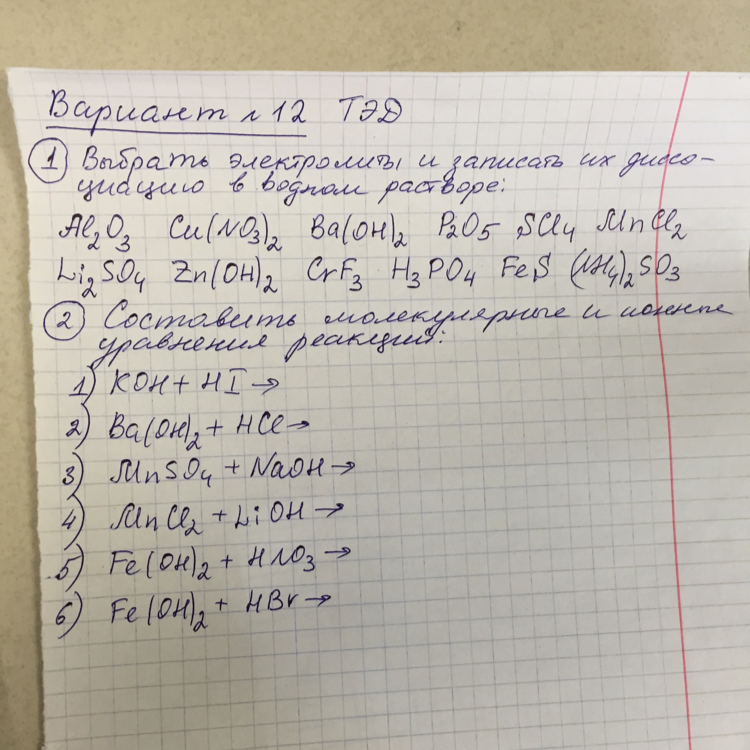 Вариант №12 ТЭД
① Выбрать электролиты и записать их диссо-
циацию в водном растворе:
Al₂O₃ Cu(NO₃)₂ Ba(OH)₂ P₂O₅ SCl₄ MnCl₂
Li₂SO₄ Zn(OH)₂ CrF₃ H₃PO₄ FeS (NH₄)₂SO₃
② Составить молекулярные и ионные
уравнения реакций:
1) KOH + HI →
2) Ba(OH)₂ + HCl →
3) MnSO₄ + NaOH →
4) MnCl₂ + LiOH →
5) Fe(OH)₂ + HNO₃ →
6) Fe(OH)₂ + HBr →